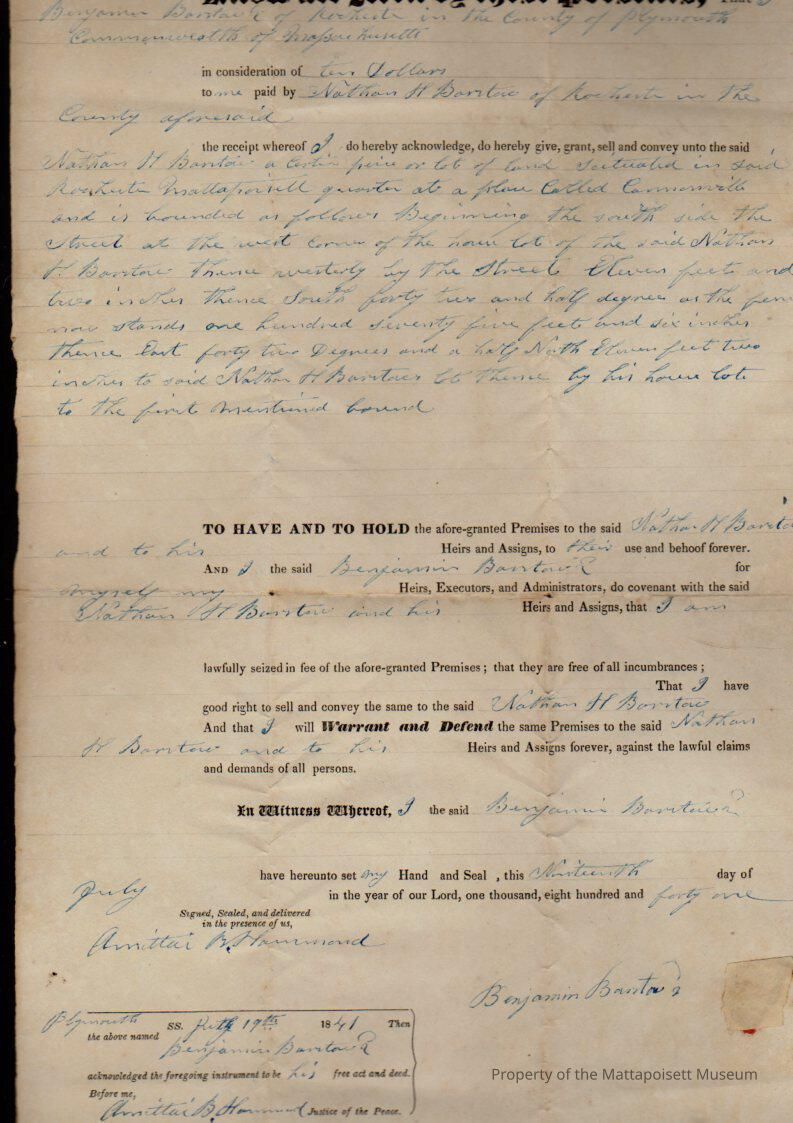 Know all men by these Presents, That I
Benjamin Barstow 2 of Rochester in the County of Plymouth
Commonwealth of Massachusetts
in consideration of ten Dollars
to me paid by Nathan H Barstow of Rochester in the
County aforesaid
the receipt whereof I do hereby acknowledge, do hereby give, grant, sell and convey unto the said
Nathan H Barstow a certin piece or lot of land scituated in said
Rochester Mattapoisett quarter at a place Called Cannonville
and is bounded as follows Beginning the south side the
Street at the west corner of the house lot of the said Nathan
H. Barstow thence westerly by the Street Eleven feet and
two inches thence South forty two and half degree as the fence
now stands one hundred seventy five feet and six inches
thence East forty two Degrees and a half North Eleven feet two
inches to said Nathan H Barstows lot thence by his house lot
to the first mentioned bound
TO HAVE AND TO HOLD the afore-granted Premises to the said Nathan H Barstow
and to his Heirs and Assigns, to their use and behoof forever.
AND I the said Benjamin Barstow 2 for
myself my Heirs, Executors, and Administrators, do covenant with the said
Nathan H Barstow and his Heirs and Assigns, that I am
lawfully seized in fee of the afore-granted Premises; that they are free of all incumbrances;
That I have
good right to sell and convey the same to the said Nathan H Barstow
And that I will Warrant and Defend the same Premises to the said Nathan
H Barstow and to his Heirs and Assigns forever, against the lawful claims
and demands of all persons.
In Witness Whereof, I the said Benjamin Barstow 2
have hereunto set my Hand and Seal, this Ninteenth day of
July in the year of our Lord, one thousand, eight hundred and forty one
Signed, Sealed, and delivered
in the presence of us,
Amittai B. Hammond
Benjamin Barstow 2
Plymouth SS. July 19th 1841 Then
the above named Benjamin Barstow 2
acknowledged the foregoing instrument to be his free act and deed.
Before me,
Amittai B. Hammond Justice of the Peace.
Property of the Mattapoisett Museum